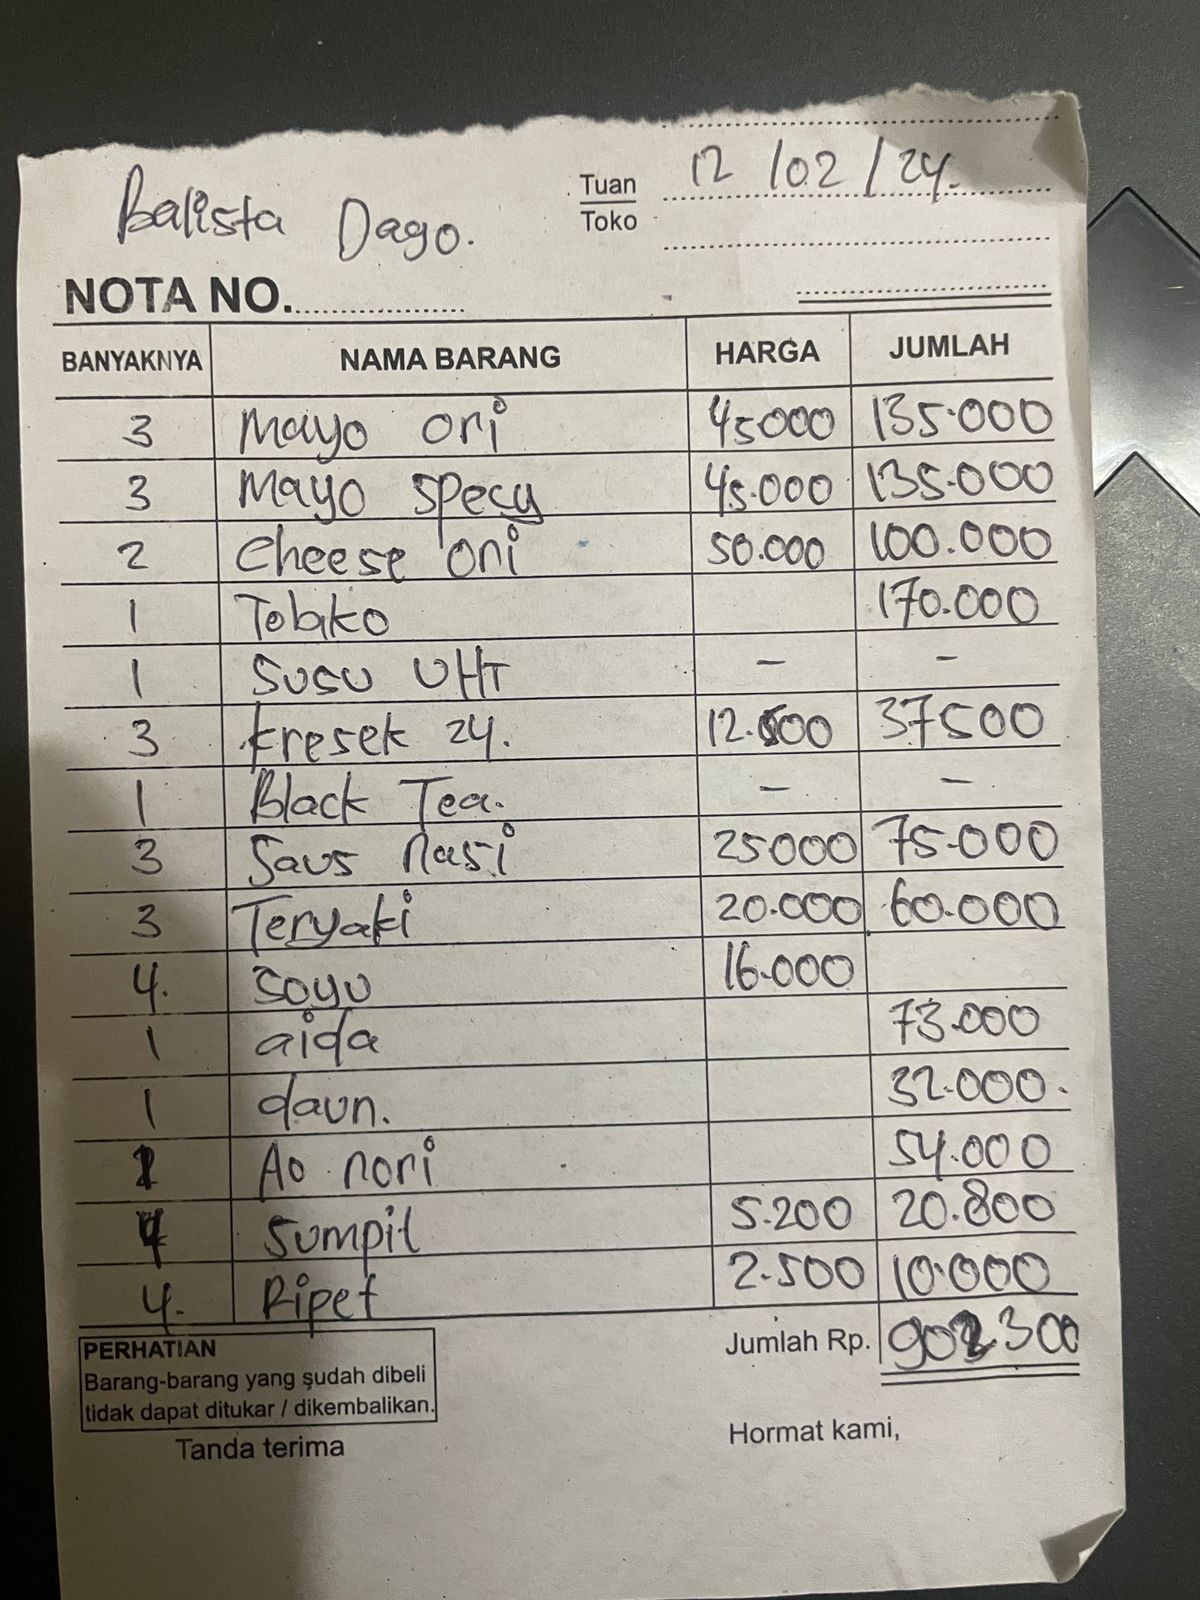 Balista Dago.
Tuan
Toko
12/02/24.
NOTA NO.
BANYAKNYA NAMA BARANG HARGA JUMLAH
3 Mayo ori 45000 135.000
3 Mayo specy 45.000 135.000
2 Cheese ori 50.000 100.000
1 Tobiko 170.000
1 Susu UHT - -
3 kresek 24. 12.500 37500
1 Black Tea. - -
3 Saus nasi 25000 75.000
3 Teryaki 20.000 60.000
4. Soyu 16.000
1 aida 73.000
1 daun. 32.000.
1 Ao nori 54.000
4 Sumpit 5.200 20.800
4. Ripet 2.500 10.000
Jumlah Rp. 902300
PERHATIAN
Barang-barang yang sudah dibeli
tidak dapat ditukar / dikembalikan.
Tanda terima
Hormat kami,